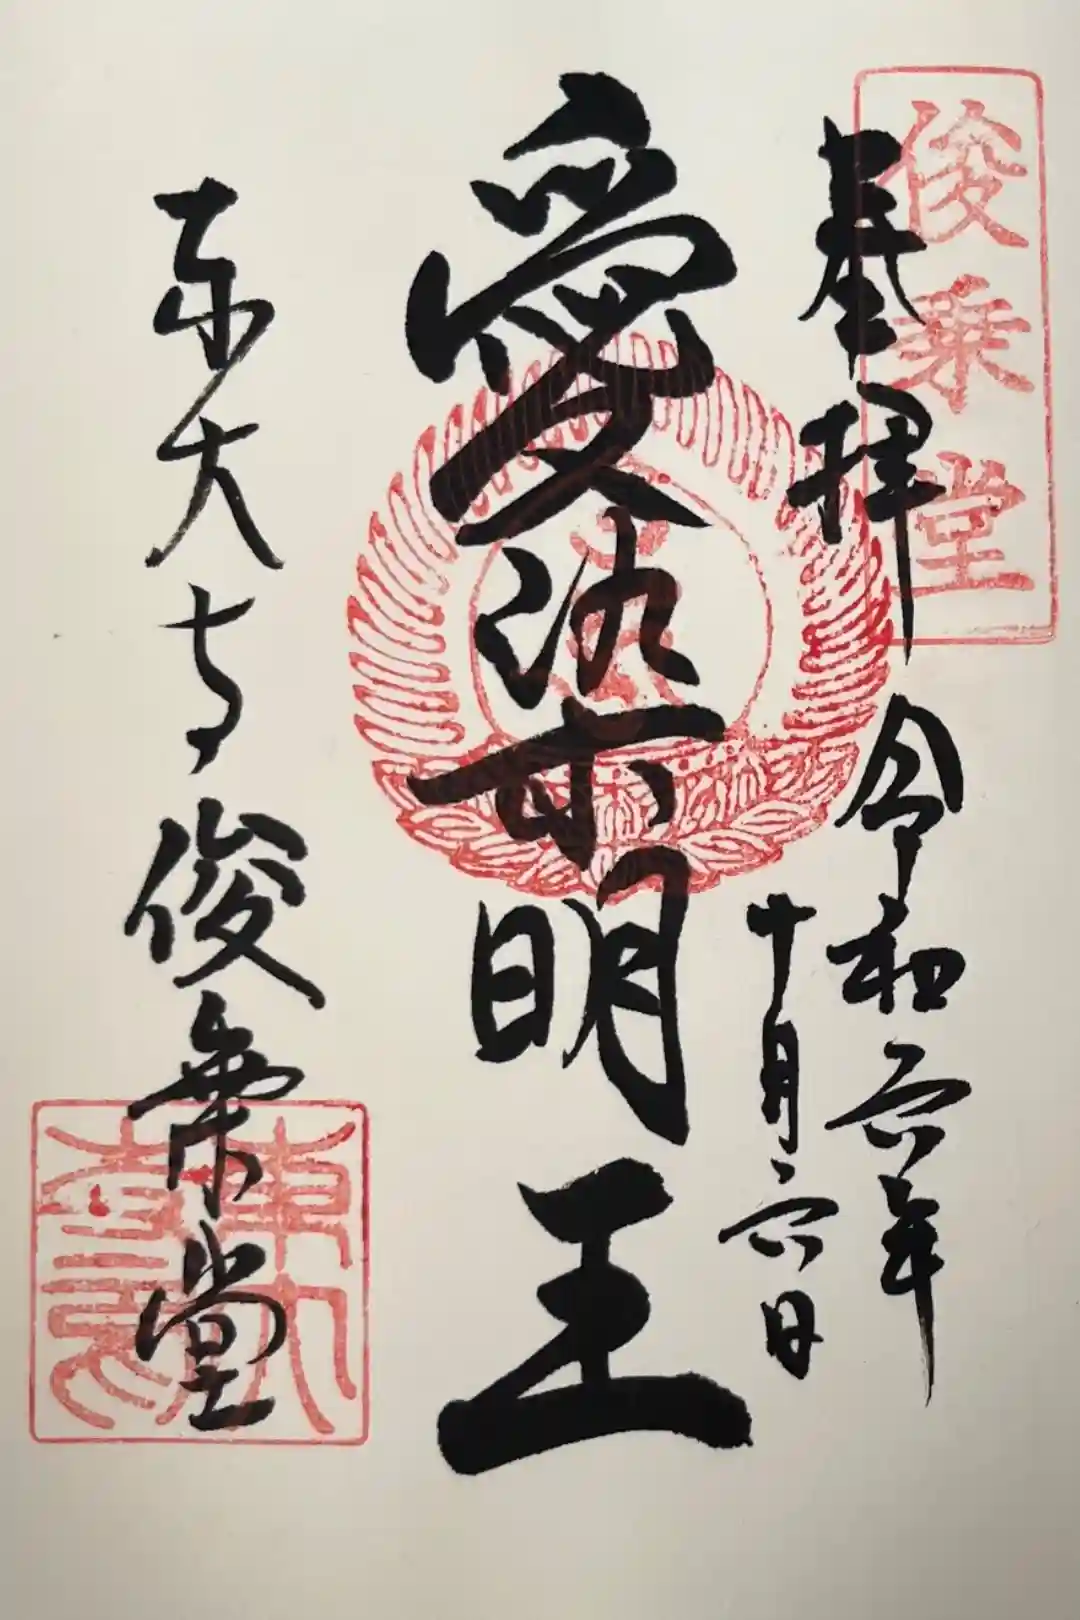 俊乗堂
奉拝
令和六年
十月六日
愛染明王
東大寺俊乗堂